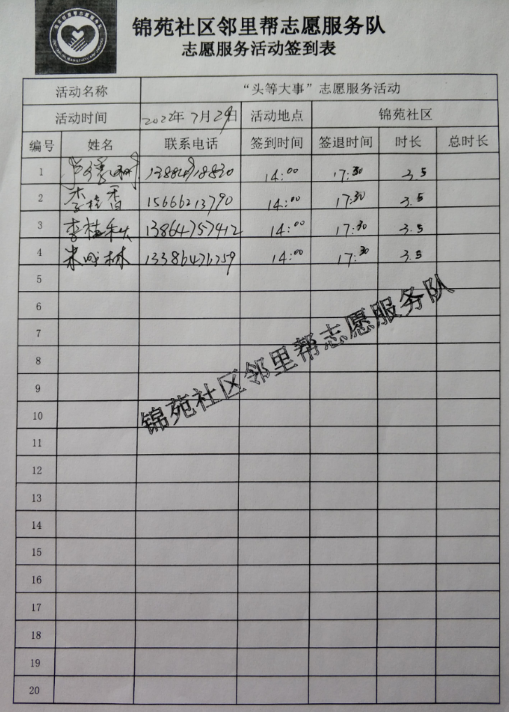 锦苑社区邻里帮志愿服务队
志愿服务活动签到表
活动名称 “头等大事”志愿服务活动
活动时间 2022年7月29日 活动地点 锦苑社区
编号 姓名 联系电话 签到时间 签退时间 时长 总时长
1 14:00 17:30 3.5
2 李桂香 15666213790 14:00 17:30 3.5
3 李桂秋 13864757412 14:00 17:30 3.5
4 14:00 17:30 3.5
5
6
7
8
9
10
11
12
13
14
15
16
17
18
19
20
锦苑社区邻里帮志愿服务队